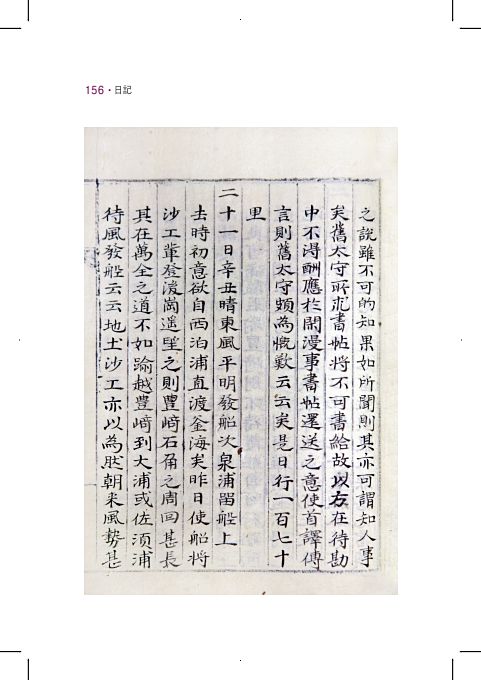 156 · 日記
之說雖不可的知果如所聞則其亦可謂知人事
矣舊太守所求書帖將不可書給故以方在待勘
中不得酬應於閑漫事書帖還送之意使首譯傳
言則舊太守頗為慨歎云云矣是日行一百七十
里
二十一日辛丑晴東風平明發船次泉浦留船上
去時初意欲自西泊浦直渡釜海矣昨日使船將
沙工輩登後崗遥望之則豊﨑石角之周回甚長
其在萬全之道不如踰越豊﨑到大浦或佐湏浦
待風發船云云地土沙工亦以為然朝来風勢甚